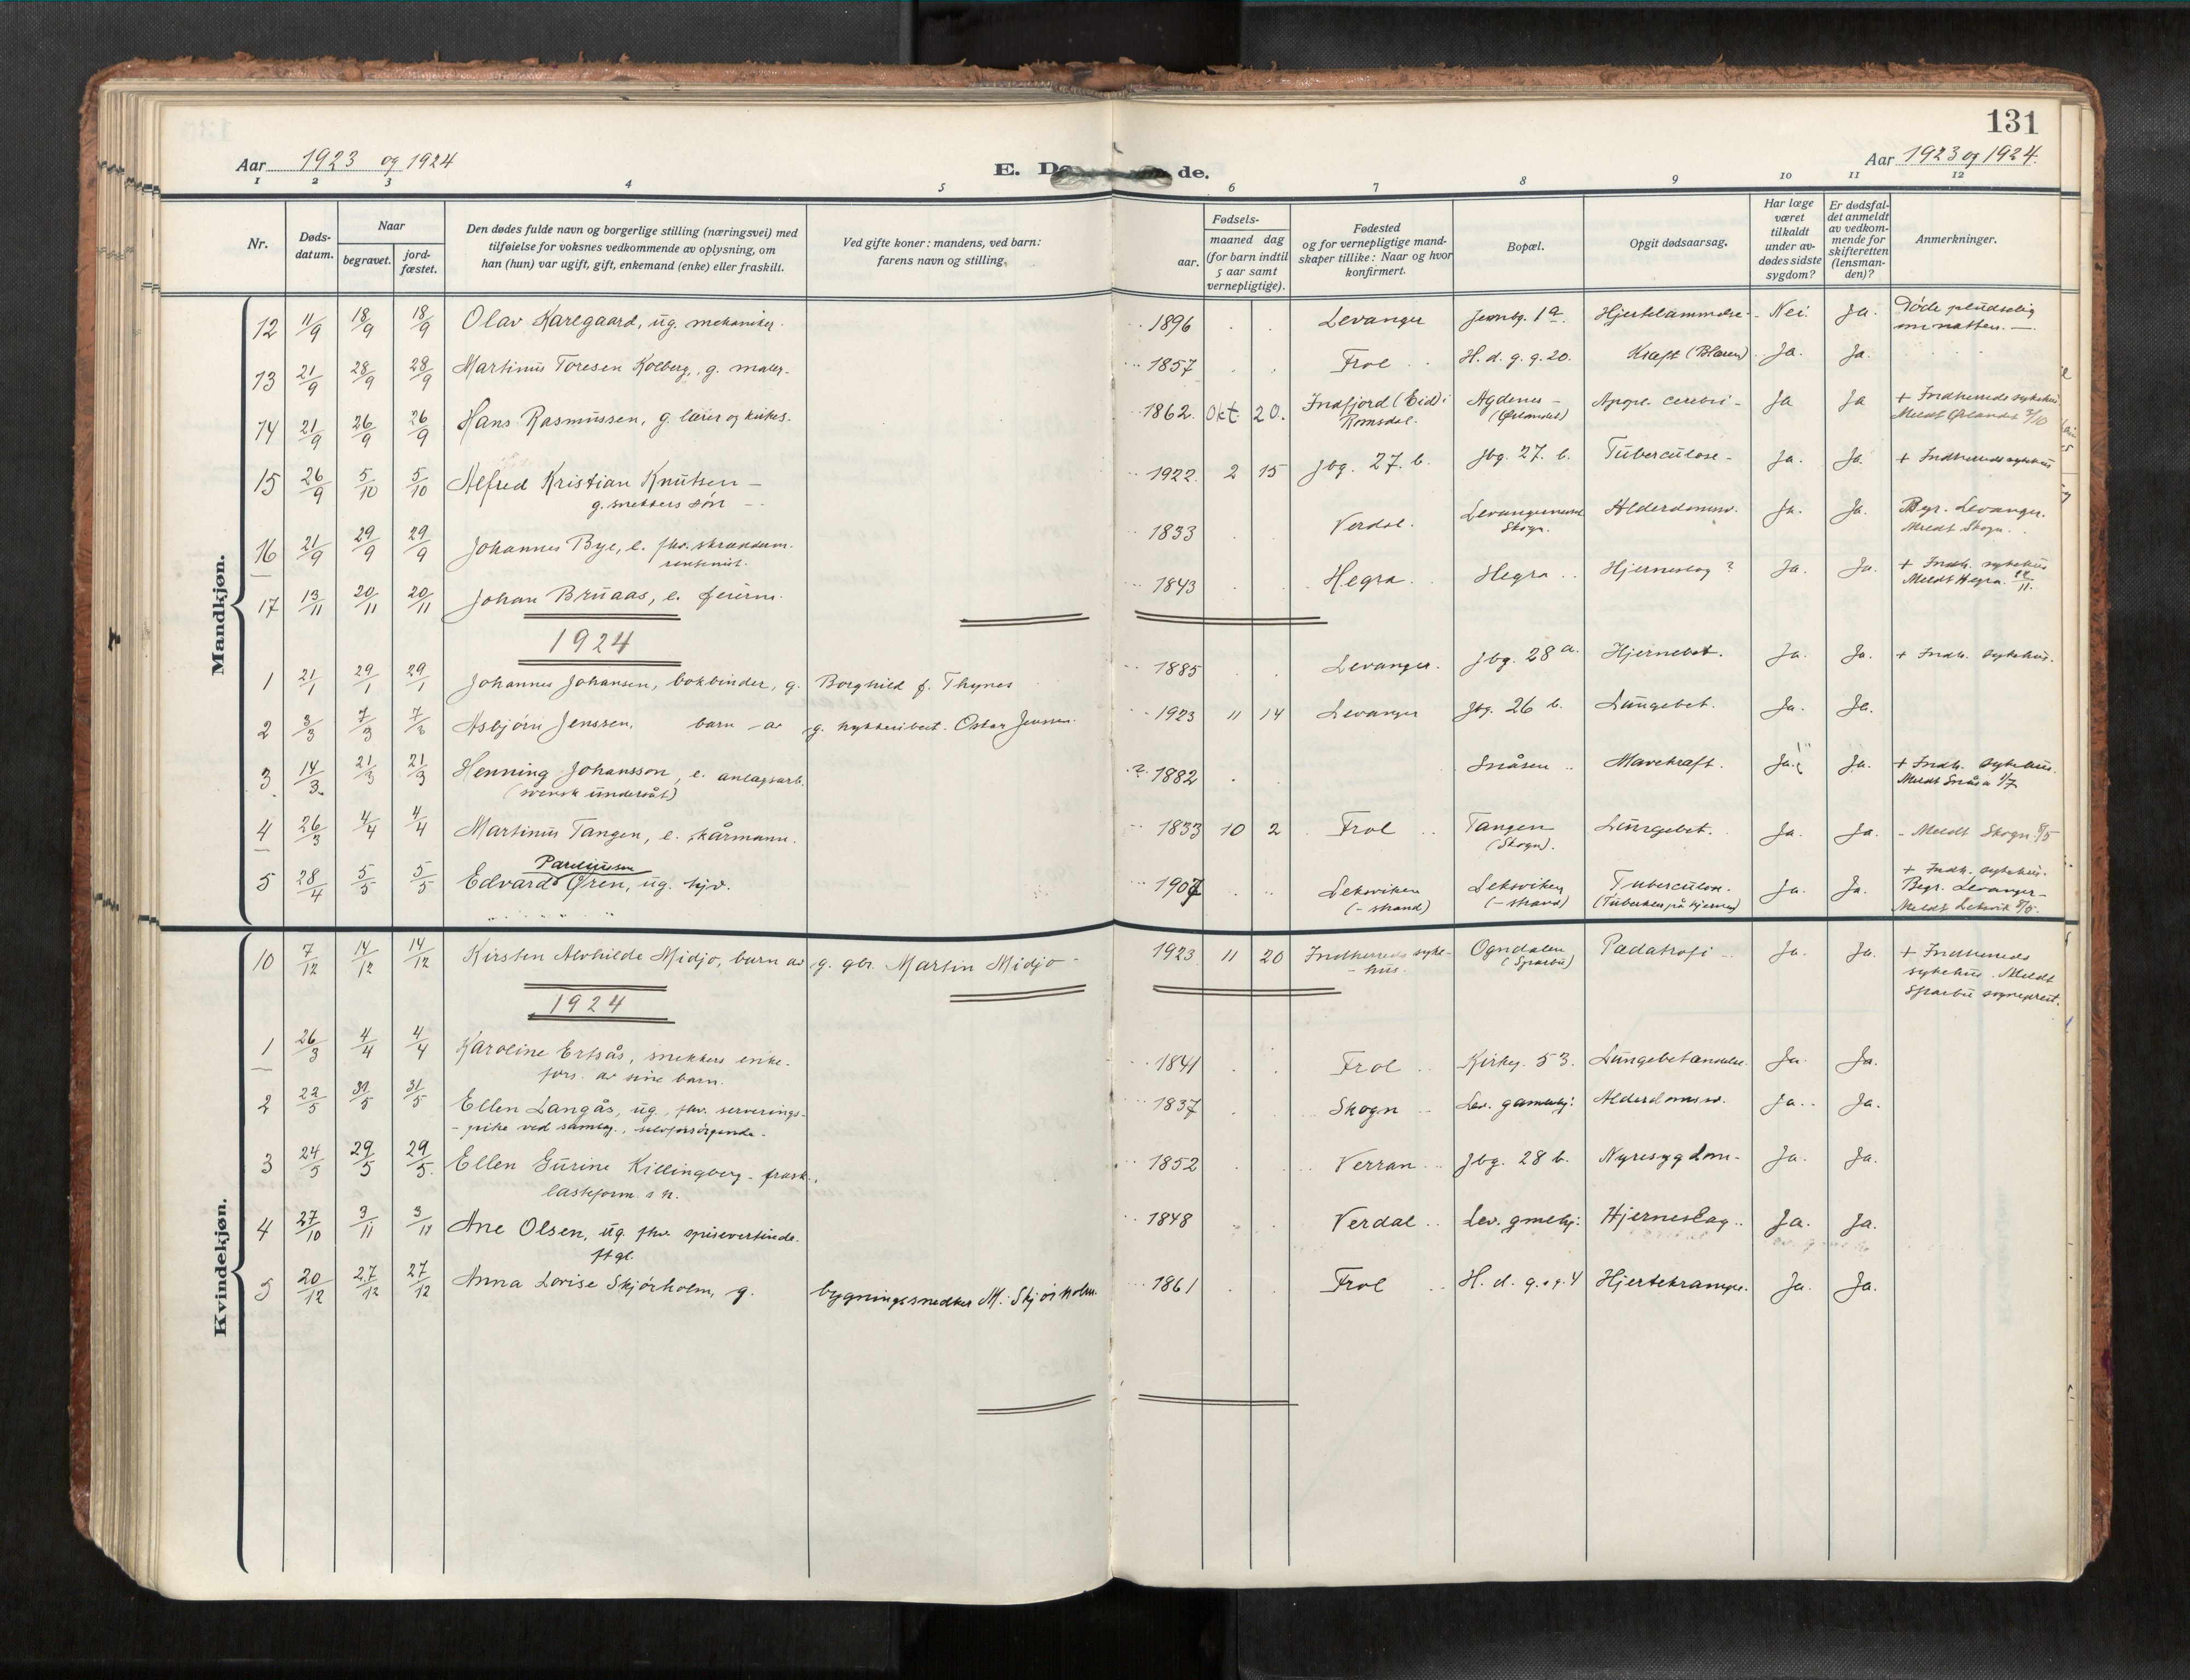 131
Aar 1923 og 1924
E. D de.
Aar 1923 og 1924.
1 2 3 4 5 6 7 8 9 10 11 12
Nr.
Døds-
datum.
Naar
begravet.
jord-
fæstet.
Den dødes fulde navn og borgerlige stilling (næringsvei) med
tilføielse for voksnes vedkommende av oplysning, om
han (hun) var ugift, gift, enkemand (enke) eller fraskilt.
Ved gifte koner: mandens, ved barn:
farens navn og stilling.
Fødsels-
aar.
maaned dag
(for barn indtil
5 aar samt
vernepligtige).
Fødested
og for vernepligtige mand-
skaper tillike: Naar og hvor
konfirmert.
Bopæl.
Opgit dødsaarsag.
Har læge
været
tilkaldt
under av-
dødes sidste
sygdom?
Er dødsfal-
det anmeldt
av vedkom-
mende for
skifteretten
(lensman-
den)?
Anmerkninger.
Mandkjøn.
12 11/9 18/9 18/9 Olav Karlgaard, ug. mekaniker. 1896 Levanger Jernbg. 1a Hjertelammelse - Nei. Ja. Døde pludselig
om natten. —
13 21/9 28/9 28/9 Martinus Toresen Kolberg, g. maler. 1857 Frol H. d. g. g. 20. Kræft (Blæren) Ja. Ja.
14 21/9 26/9 26/9 Hans Rasmussen, g. lærer og kirkes. 1862. Okt. 20. Indfjord (Eid) i Agdenes - Apopl. cerebri - Ja Ja + Indherreds sykehus
Romsdal. (Ørlandet) Meldt Ørlandet 3/10
15 26/9 5/10 5/10 Alfred Kristian Knutsen — 1922. 2 15 Jbg. 27. b. Jbg. 27. b. Tuberculose - Ja. Ja. + Indherreds sykehus
g. snekkers søn -
16 21/9 29/9 29/9 Johannes Bye, e. fhv. 1833 Verdal. Levangernesset Alderdomssv. Ja. Ja. Begr. Levanger.
Skogn. Meldt Skogn.
17 13/11 20/11 20/11 Johan Bruaas, e. 1843 Hegra. Hegra Hjerneslag ? Ja. Ja. + Indh. sykehus
Meldt Hegra 17/11.
1924
1 21/1 29/1 29/1 Johannes Johansen, bokbinder, g. Borghild f. Thynes 1885 Levanger. Jbg. 28 a. Hjernebet. Ja. Ja. + Indh. sykehus.
2 3/3 7/3 7/3 Asbjørn Jenssen, barn av g. Oskar Jenssen. 1923 11 14 Levanger Jbg. 26 b. Lungebet. Ja. Ja.
3 14/3 21/3 21/3 Henning Johansson, e. anlægsarb. ? 1882 Snåsen Mavekræft. Ja. Ja. + Indh. sykehus.
(svensk undersåt) Meldt Snåsa 1/7
4 26/3 4/4 4/4 Martinus Tangen, e. kårmann. 1833 10 2 Frol Tangen Lungebet. Ja. Ja. - Meldt Skogn 8/5
(Skogn).
Pareliusen
5 28/4 5/5 5/5 Edvard Øren, ug. 1907 Leksviken Leksviken Tuberculose. Ja. Ja. + Indh. sykehus.
(- strand) (- strand) (Tuberkler på hjernen) Begr. Levanger -
Meldt Leksvik 8/5.
Kvindekjøn.
10 7/12 14/12 14/12 Kirsten Alvhilde Midjo, barn av g. gbr. Martin Midjo - 1923 11 20 Indherreds syke- Ogndalen Pædatrofi Ja. Ja. + Indherreds
- hus. (Sparbu) sykehus. Meldt
Sparbu sogneprest.
1924
1 26/3 4/4 4/4 Karoline Ertsås, snekkers enke. 1841 Frol Kirkeg. 53. Lungebetændelse. Ja. Ja.
fors. av sine barn.
2 22/5 31/5 31/5 Ellen Langås, ug., fhv. serverings- 1837 Skogn Lev. gamlehj: Alderdomssv. Ja. Ja.
- pike ved samlag., selvforsørgende.
3 24/5 29/5 29/5 Ellen Gurine Killingberg - frask., 1852 Verran Jbg. 28 b. Nyresygdom - Ja. Ja.
4 27/10 3/11 3/11 Ane Olsen, ug. fhv. spisevertinde. 1848 Verdal Lev. gmlehj: Hjerneslag. Ja. Ja.
5 20/12 27/12 27/12 Anna Lovise Skjørholm, g. bygningssnedker M. Skjørholm. 1861 Frol H. d. g. g. 4 Hjertekrampe. Ja. Ja.